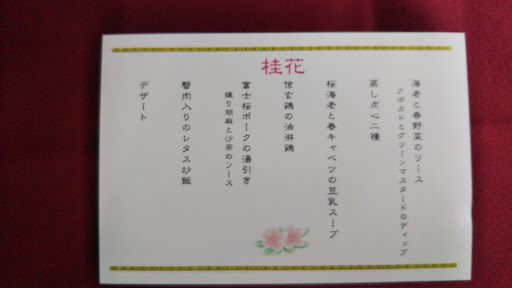 桂花
海老と春野菜のリース
アボカドとグリーンマスタードのディップ
蒸し点心二種
桜海老と春キャベツの豆乳スープ
信玄鶏の油淋鶏
富士桜ポークの湯引き
練り胡麻と沙茶のソース
蟹肉入りのレタス炒飯
デザート